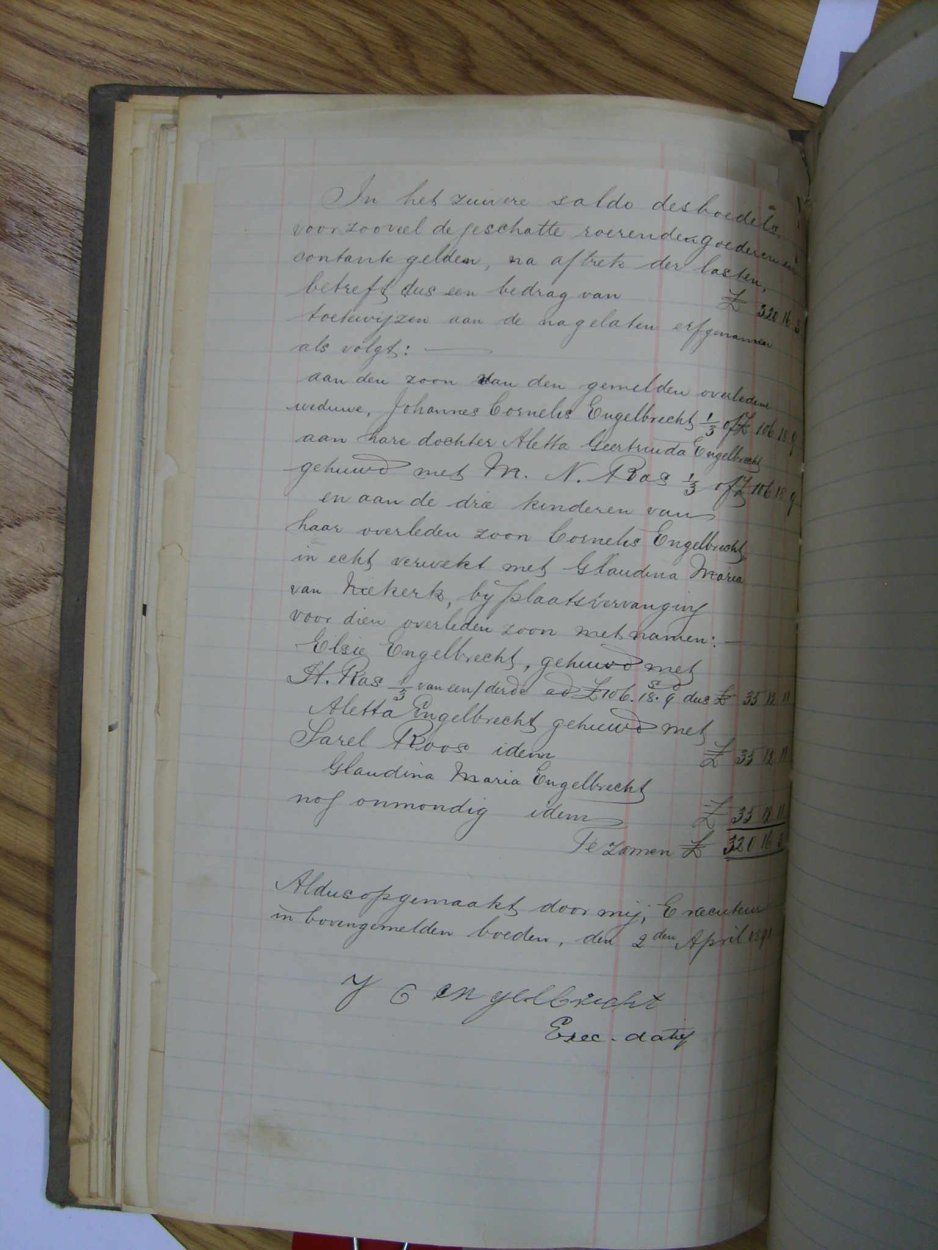 In het zuivere saldo des boedels,
voor zooveel de geschatte roerende goederen en
contante gelden, na aftrek der lasten,
betreft dus een bedrag van £ 320 16
toetewyzen aan de nagelaten erfgenamen
als volgt: —
aan den zoon van den gemelden overledene
weduwe, Johannes Cornelis Engelbrecht 1/3 of £ 106 18 9
aan hare dochter Aletta Geertruida Engelbrecht
gehuwd met M. N. Ras 1/3 of £ 106 18 9
en aan de drie kinderen van
haar overleden zoon Cornelis Engelbrecht
in echt verwekt met Glaudina Maria
van Niekerk, by plaatsvervanging
voor dien overleden zoon met namen: —
Elsie Engelbrecht, gehuwd met
H. Ras 1/3 van een/derde ad £ 106. 18. 9 dus £ 35 12 11
Aletta Engelbrecht gehuwd met
Sarel Roos idem £ 35 12 11
Glaudina Maria Engelbrecht
nog onmondig idem £ 35 12 11
Te zamen £ 320 16
Aldus opgemaakt door mij, Executeur
in bovengemelden boedel, den 2den April 1891
J C engelbrecht
Exec. datif